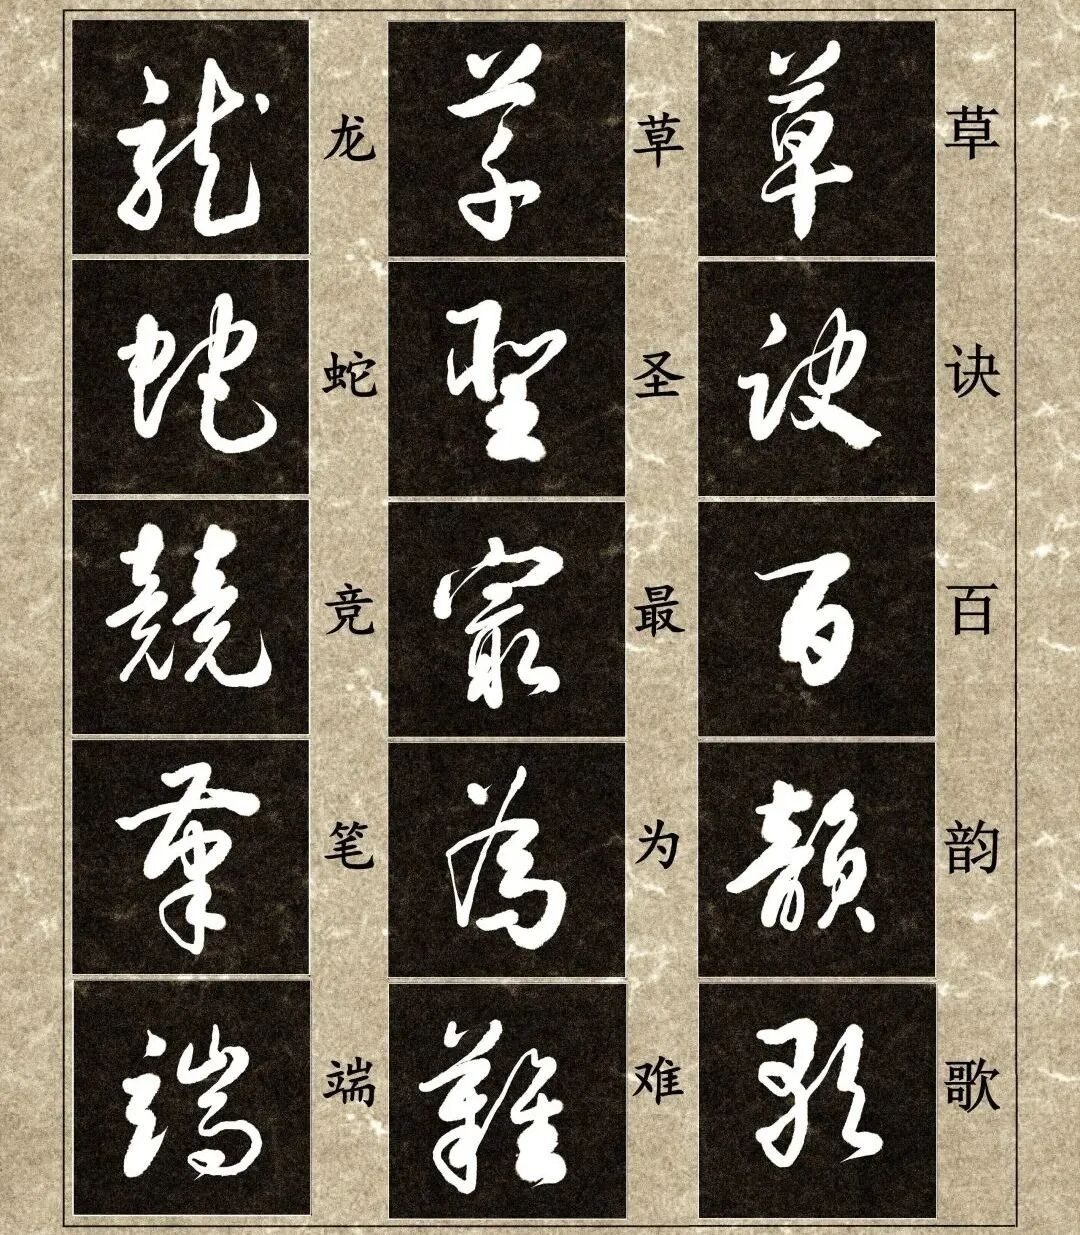 草诀百韵歌
草圣最为难
龙蛇竞笔端